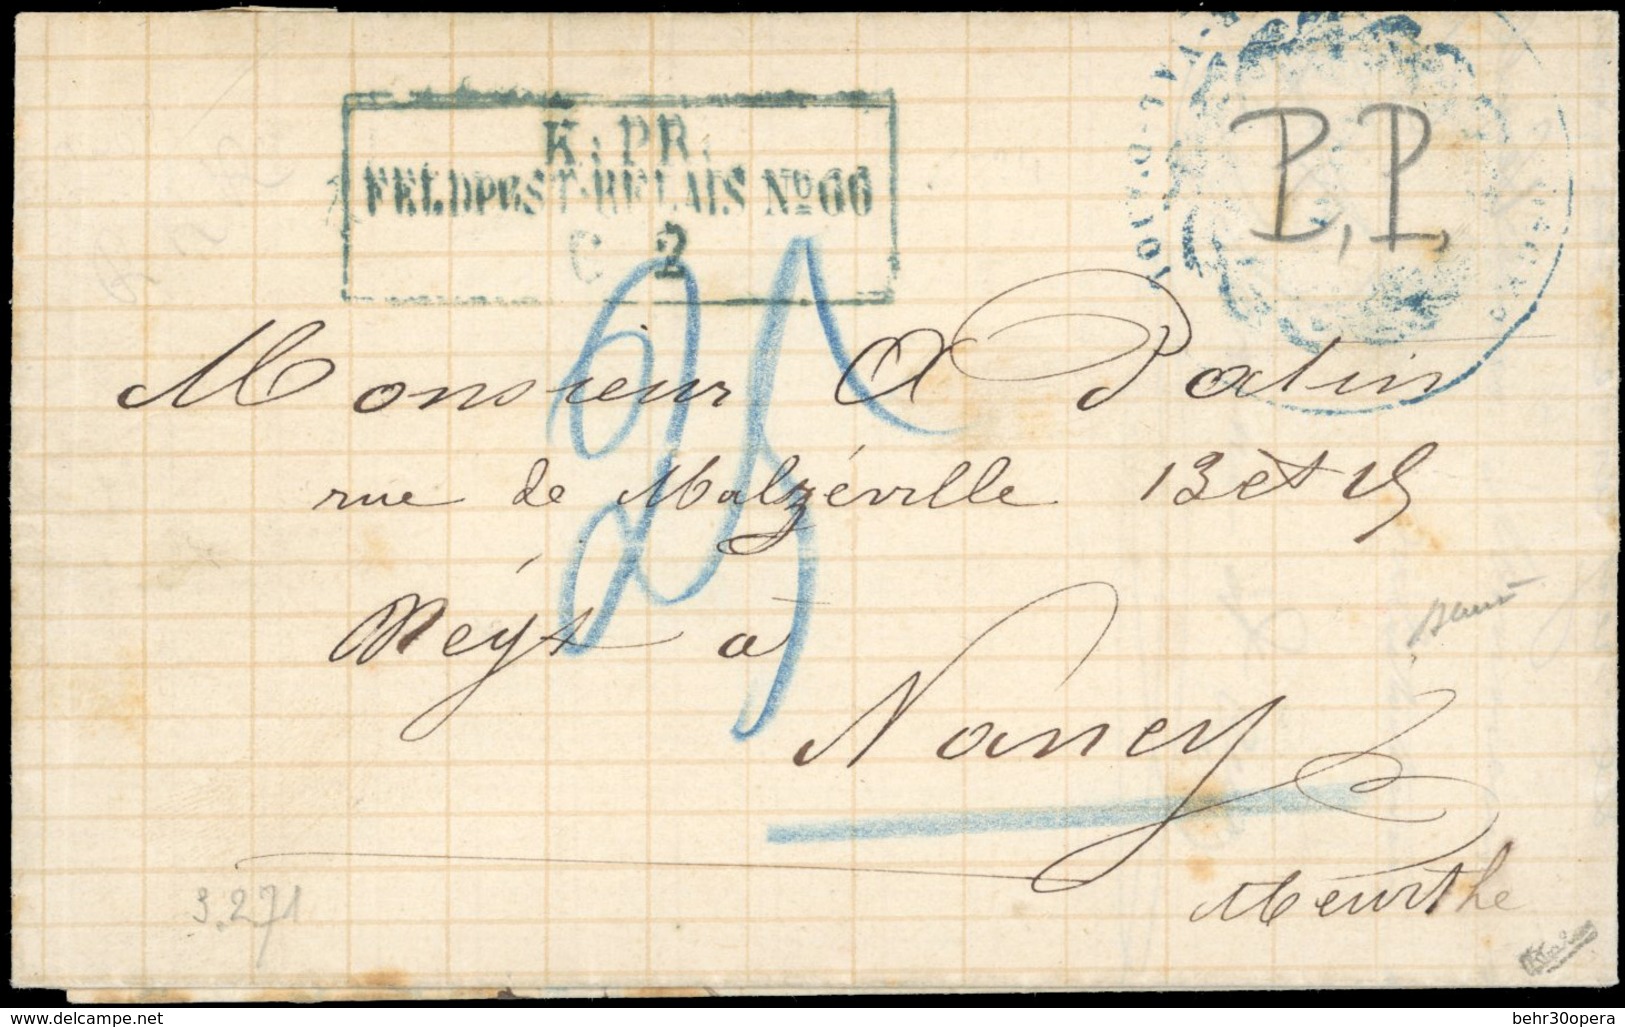 K. PR.
FELDPOST-RELAIS No 66
C 2
P.P.
25
Monsieur A Patin
rue de Malzéville 13 et 15
à
Nancy
Meurthe
3.271
www.delcampe.net
behr30opera